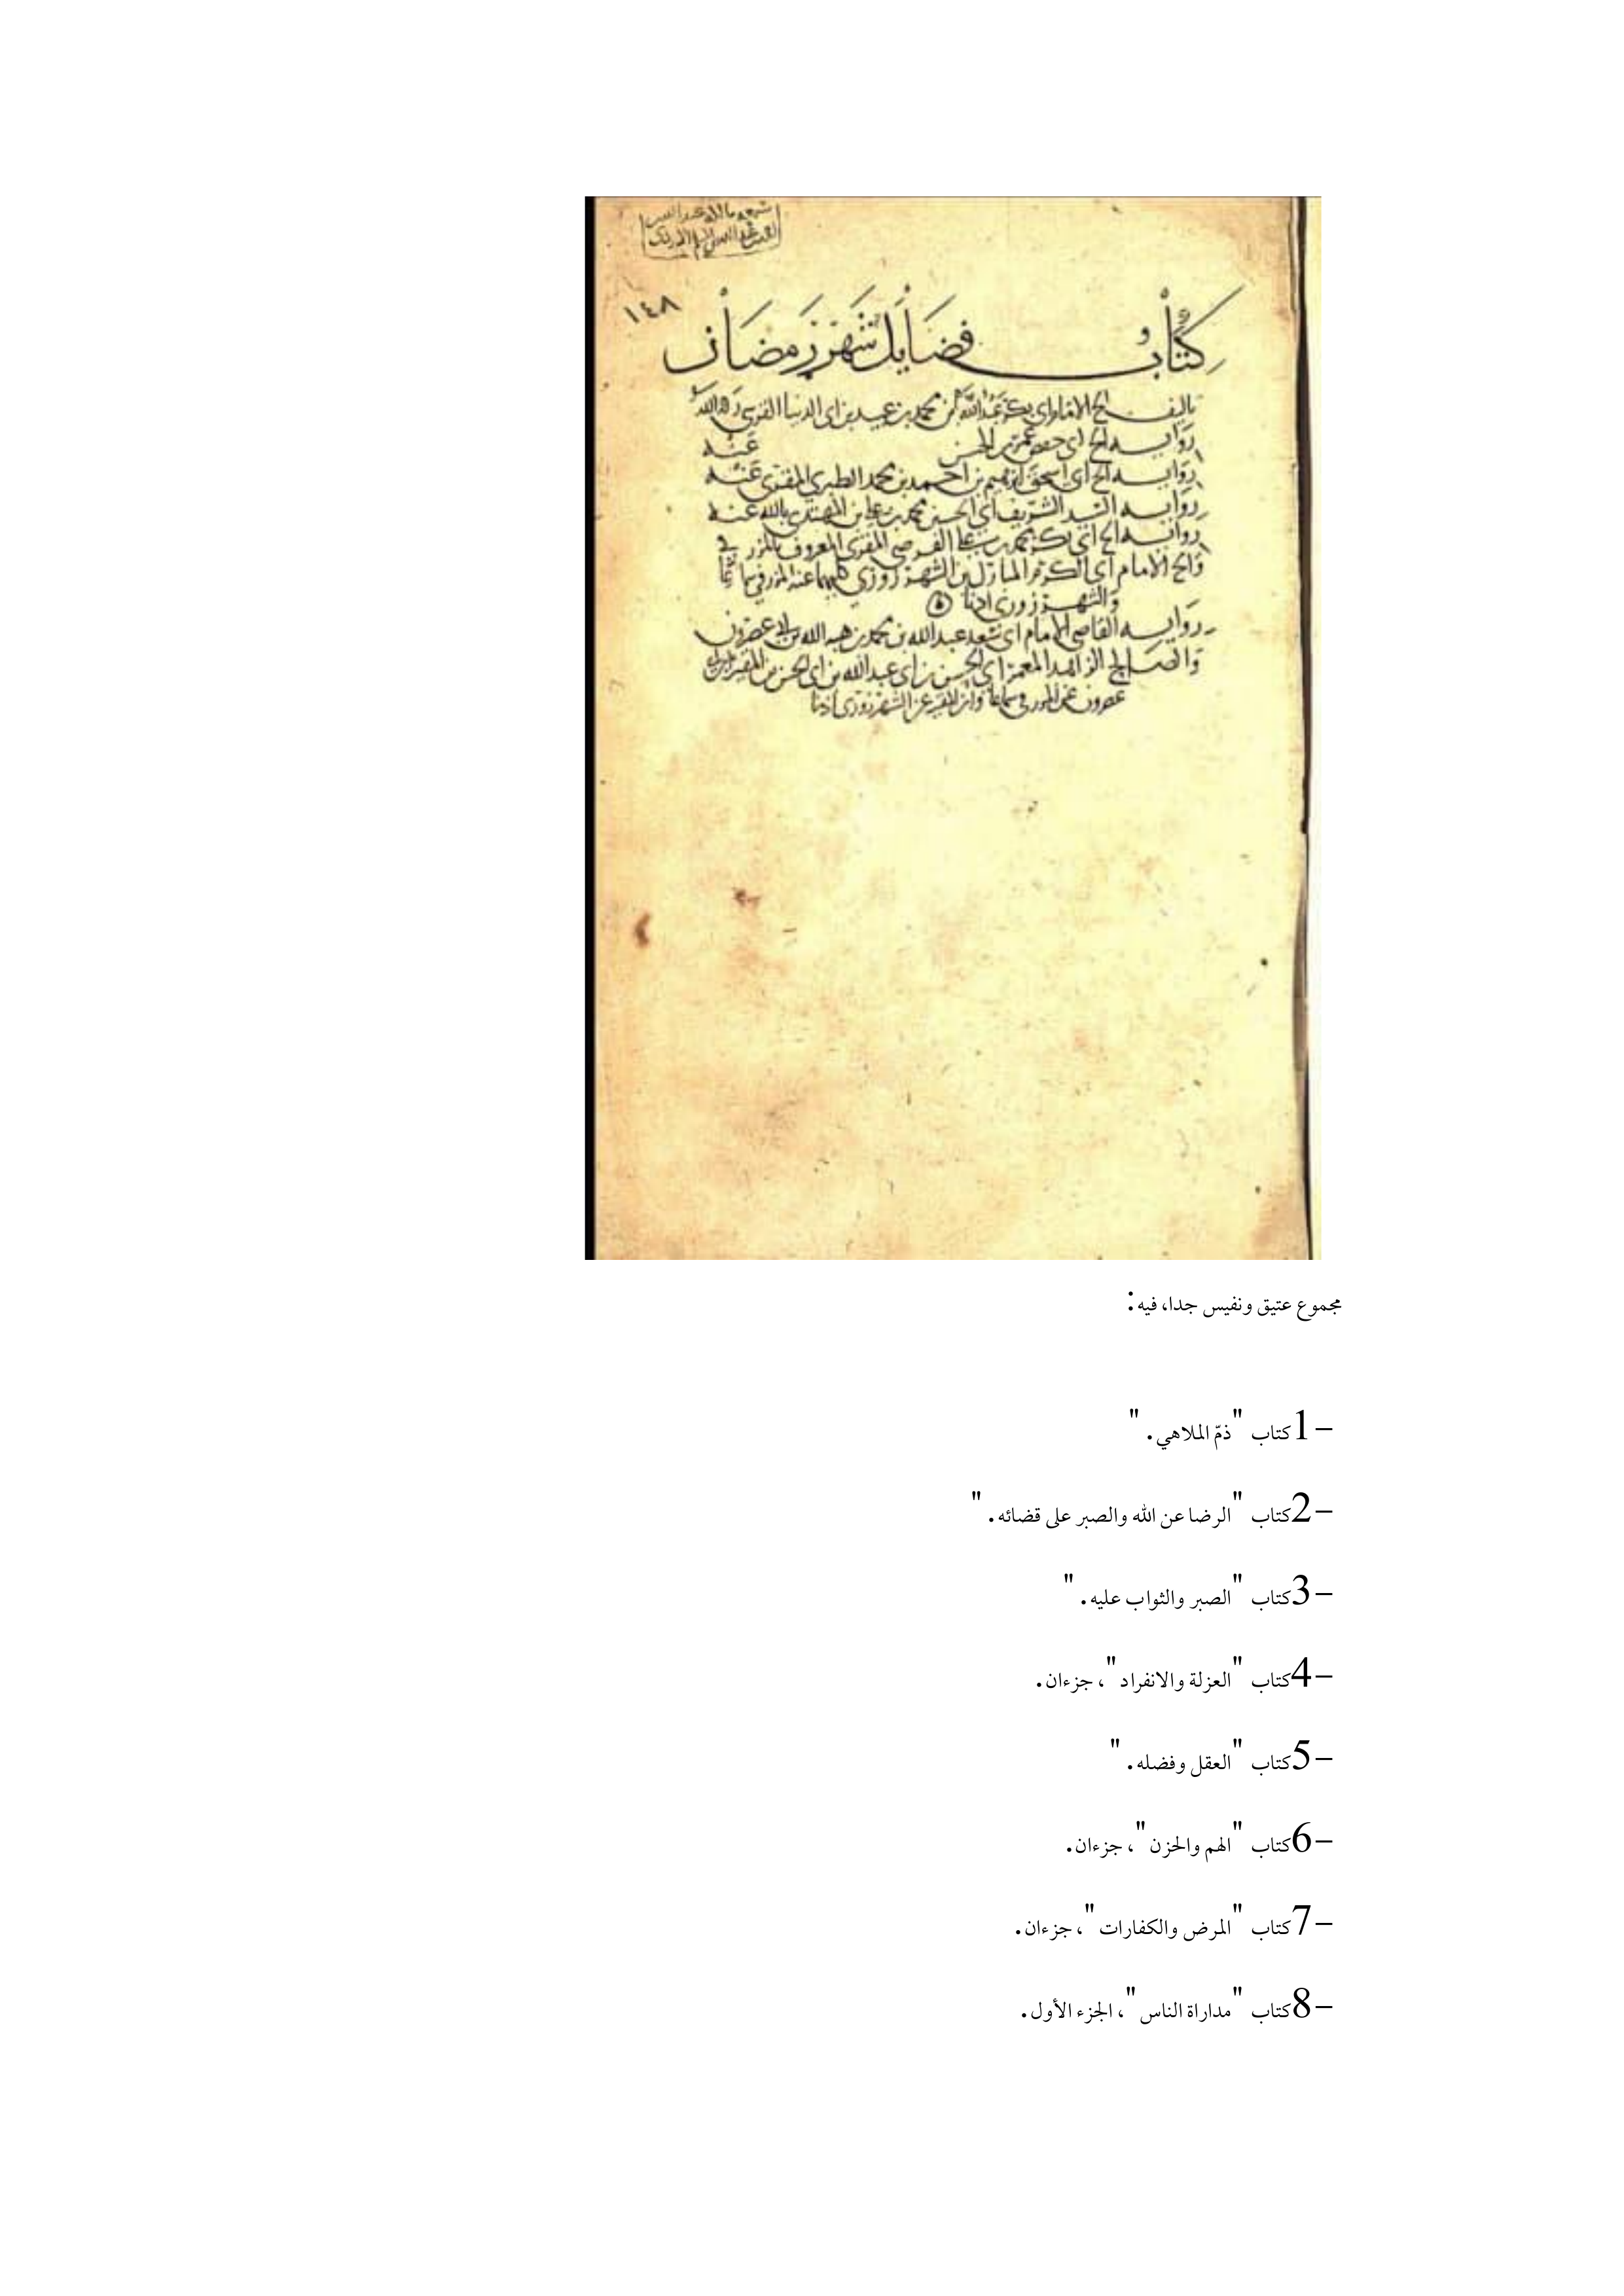 ١٤٨
كتاب فضايل شهر رمضان
تاليف الشيخ الامام ابي بكر عبد الله بن محمد بن عبيد بن ابي الدنيا القرشي رحمه الله
رواية الشيخ ابي حفص عمر بن الحسن عنه
رواية الشيخ ابي اسحق ابرهيم بن احمد بن محمد الطبري المقري عنه
رواية السيد الشريف ابي الحسين محمد بن علي بن المهتدي بالله عنه
رواية الشيخ ابي بكر محمد بن علي الفرضي المقري المعروف بالمزرفي
والشيخ الامام ابي الكرم المبارك بن الشهرزوري كليهما عنه المزرفي سماعا
والشهرزوري اذنا
رواية القاضي الامام ابي سعد عبد الله بن محمد بن هبة الله بن ابي عصرون
والصالح الزاهد المعمر ابي الحسن بن ابي عبد الله بن ابي الحسن بن المقير
عصرون عن المزرفي سماعا وابن المقير عن الشهرزوري اذنا
مجموع عتيق ونفيس جدا، فيه:
-1كتاب "ذمّ الملاهي."
-2كتاب "الرضا عن الله والصبر على قضائه."
-3كتاب "الصبر والثواب عليه."
-4كتاب "العزلة والانفراد"، جزءان.
-5كتاب "العقل وفضله."
-6كتاب "الهم والحزن"، جزءان.
-7كتاب "المرض والكفارات"، جزءان.
-8كتاب "مداراة الناس"، الجزء الأول.